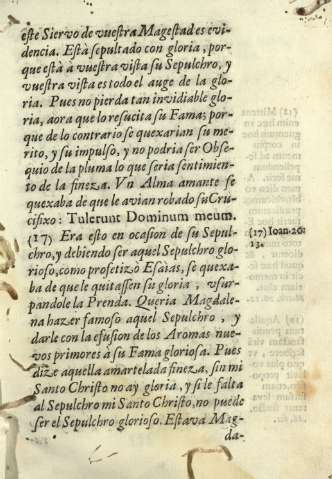 este Siervo de vuestra Magestad es evi-
dencia. Està sepultado con gloria, por-
que està à vuestra vista su Sepulchro, y
vuestra vista es todo el auge de la glo-
ria. Pues no pierda tan invidiable glo-
ria, aora que lo resucita su Fama; por-
que de lo contrario se quexarian su me-
rito, y su impulso, y no podria ser Obse-
quio de la pluma lo que seria sentimien-
to de la fineza. Vn Alma amante se
quexaba de que le avian robado su Cru-
cifixo: Tulerunt Dominum meum.
(17) Era esto en ocasion de su Sepul-
chro, y debiendo ser aquel Sepulchro glo-
rioso, como profetizò Esaias, se quexa-
ba de que le quitassen su gloria, vsur-
pandole la Prenda. Queria Magdale-
na hazer famoso aquel Sepulchro, y
darle con la efusion de los Aromas nue-
vos primores à su Fama gloriosa. Pues
dize aquella amartelada fineza, sin mi
Santo Christo no ay gloria, y si le falta
al Sepulchro mi Santo Christo, no puede
ser el Sepulchro glorioso. Estava Mag-
da-
(17) Ioan. 20.
13.